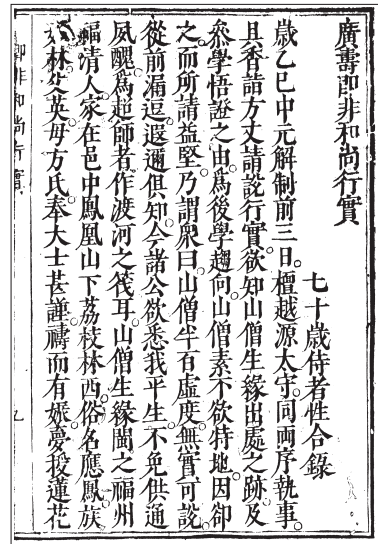 廣壽即非和尚行實
七十歲侍者性合錄
歲乙巳中元解制前三日。檀越源太守。同兩序執事。
具香詣方丈請說行實。欲知山僧生緣出處之跡。及
叅學悟證之由。爲後學趨向。山僧素不欲特地。因卻
之。而所請益堅。乃謂衆曰。山僧半百虛度。無實可說。
從前漏逗。遐邇俱知。今諸公欲悉我平生。不免供通
夙醜。爲起師者作渡河之筏耳。山僧生緣閩之福州
福清人。家在邑中鳳凰山下荔枝林西。俗名應鳳。族
林。父英。母方氏。奉大士甚謹。禱而有娠。夢授蓮花
即非和尚行實
九